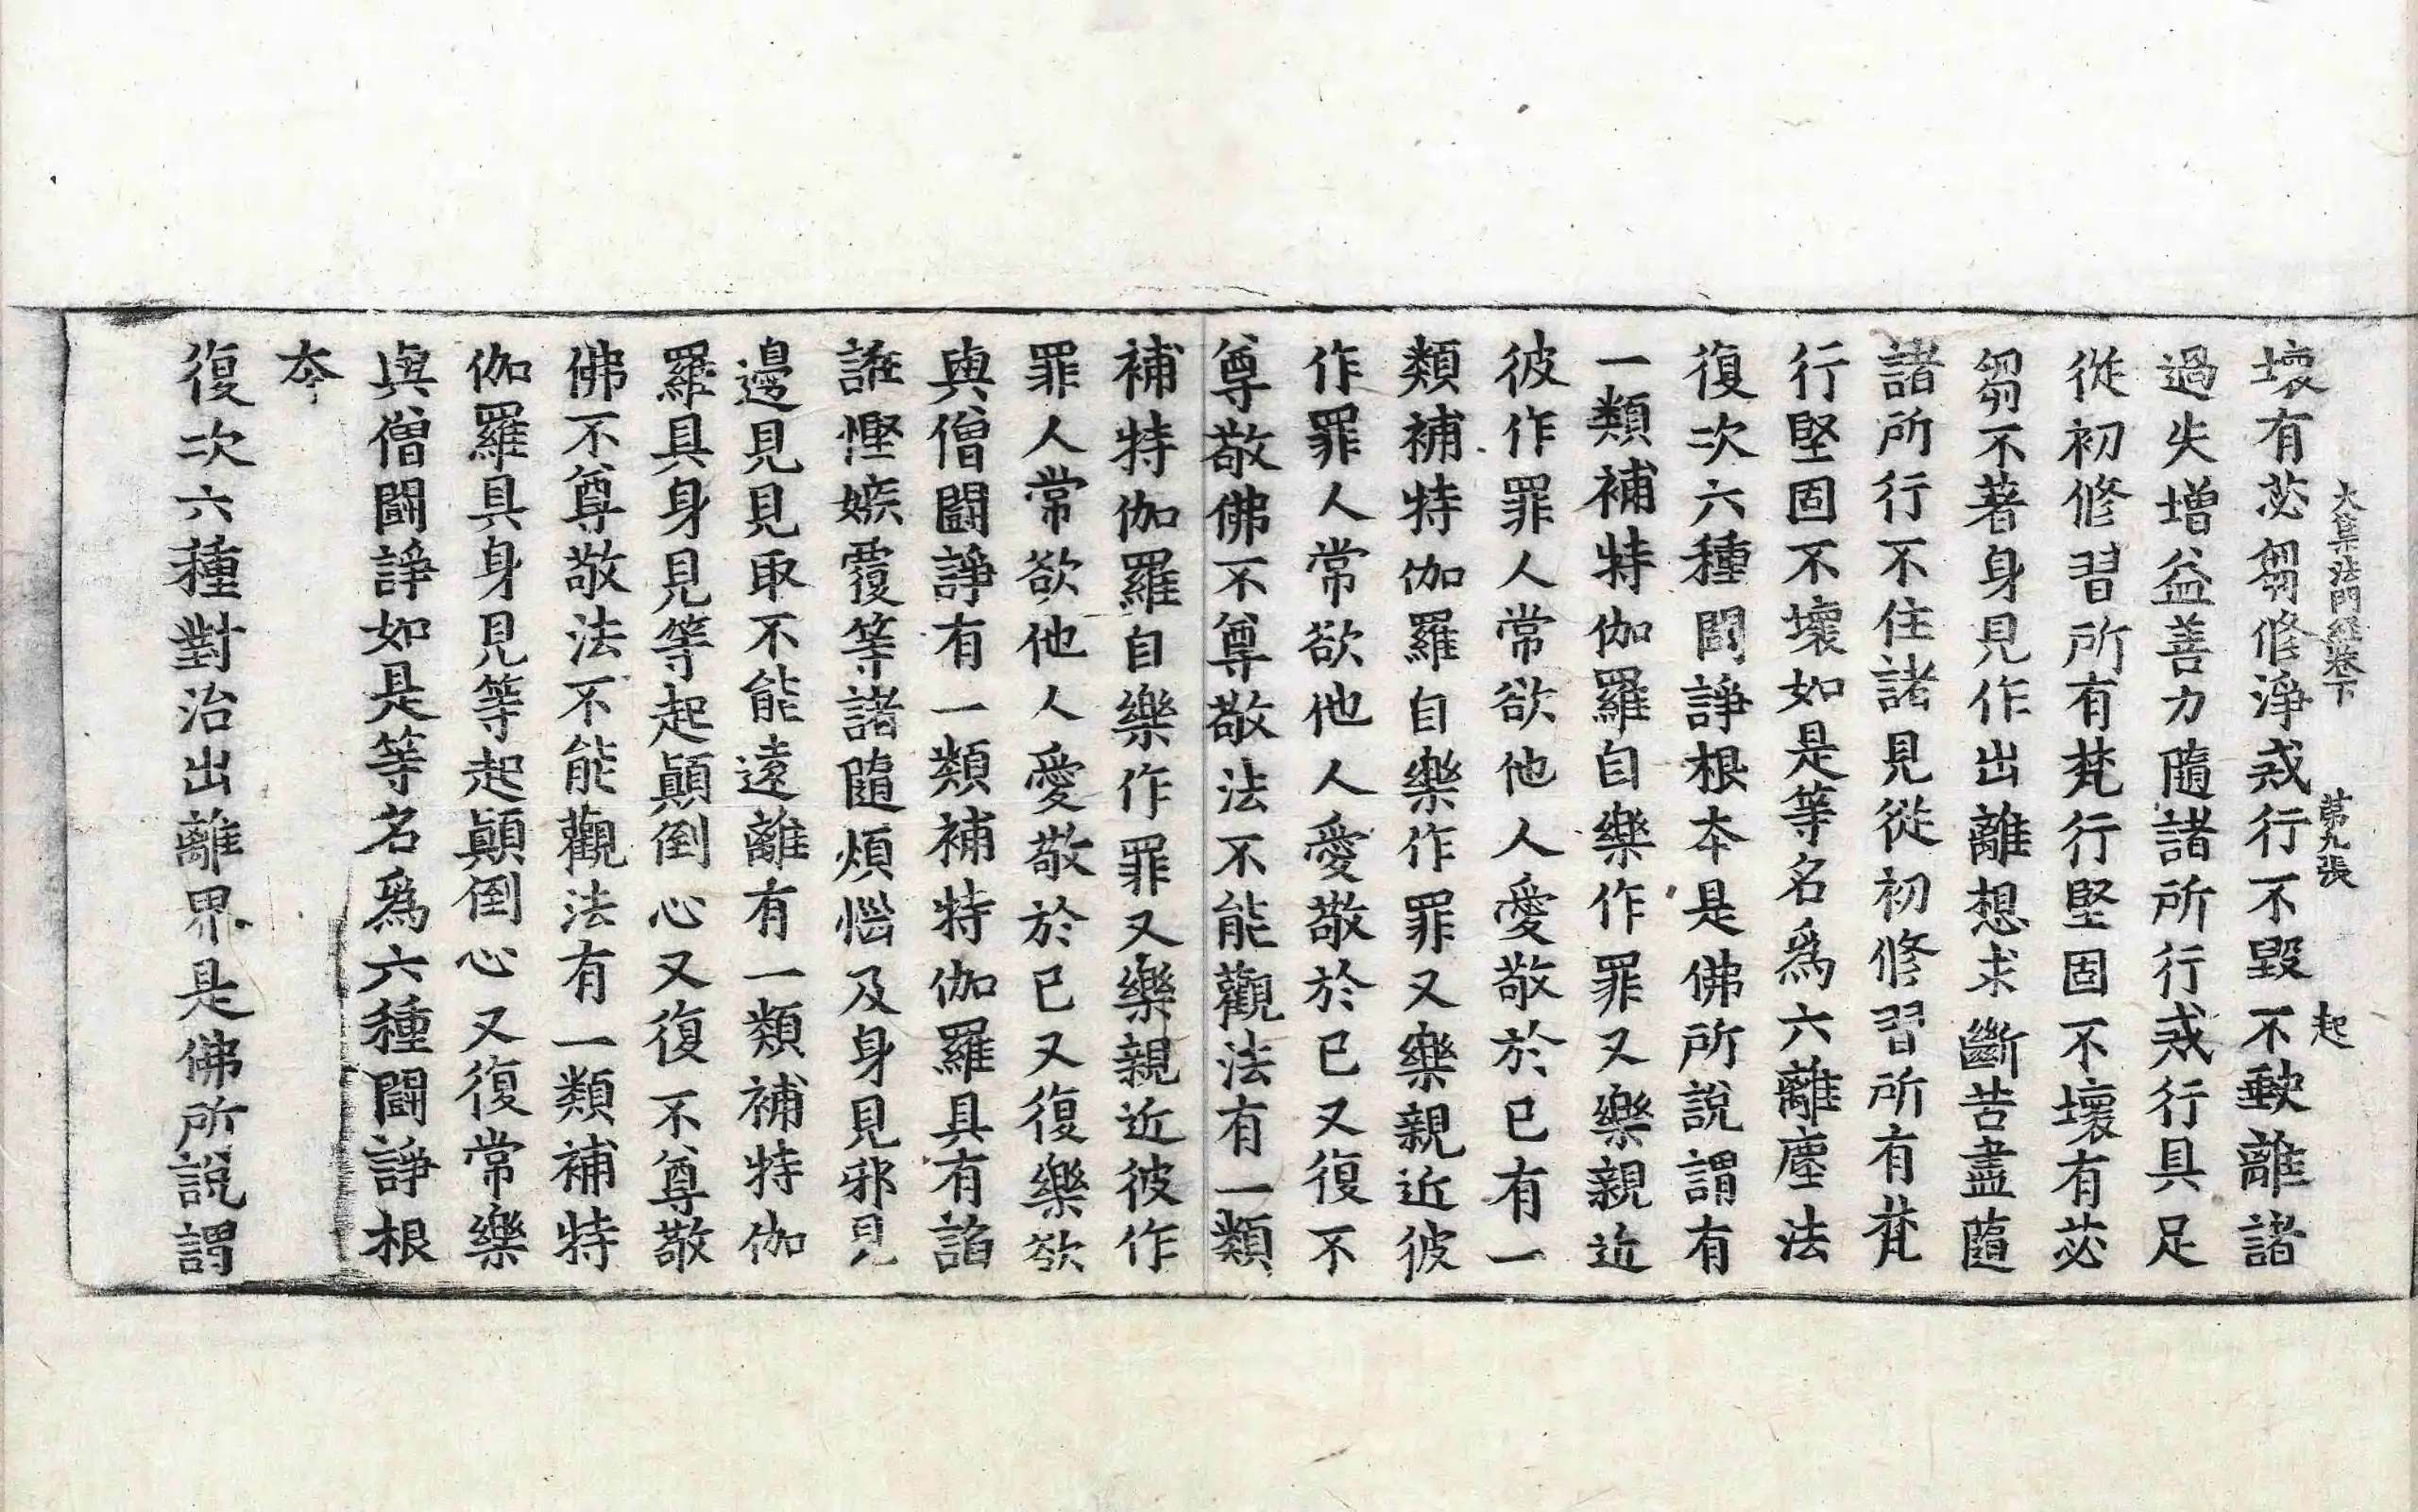 大集法門經卷下 第九張 起
壞有苾芻修淨戒行不毀不缺離諸
過失增益善力隨諸所行戒行具足
從初修習所有梵行堅固不壞有苾
芻不著身見作出離想求斷苦盡隨
諸所行不住諸見從初修習所有梵
行堅固不壞如是等名爲六離塵法
復次六種鬪諍根本是佛所說謂有
一類補特伽羅自樂作罪又樂親近
彼作罪人常欲他人愛敬於已有一
類補特伽羅自樂作罪又樂親近彼
作罪人常欲他人愛敬於已又復不
尊敬佛不尊敬法不能觀法有一類
補特伽羅自樂作罪又樂親近彼作
罪人常欲他人愛敬於已又復樂欲
與僧鬪諍有一類補特伽羅具有諂
誑慳嫉覆等諸隨煩惱及身見邪見
邊見見取不能遠離有一類補特伽
羅具身見等起顚倒心又復不尊敬
佛不尊敬法不能觀法有一類補特
伽羅具身見等起顚倒心又復常樂
與僧鬪諍如是等名爲六種鬪諍根
夲
復次六種對治出離界是佛所說謂